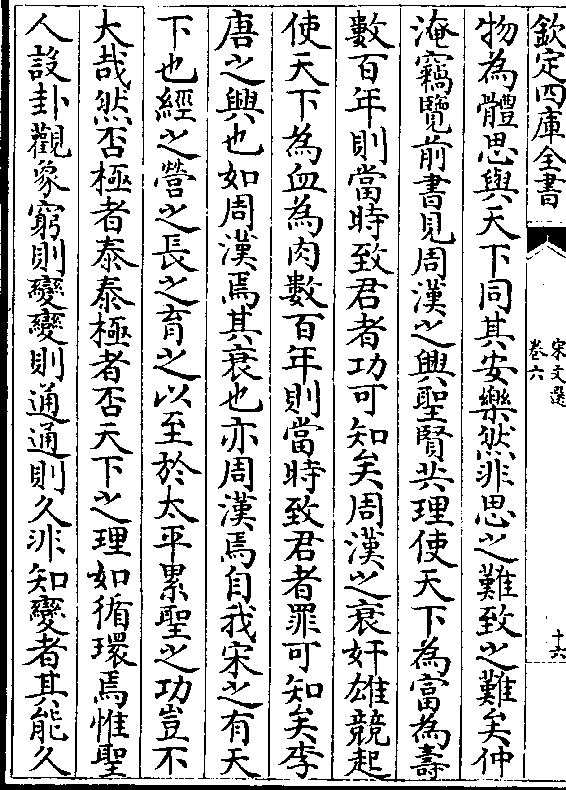 欽定四庫全書
宋文選
卷六
十六
物為體思與天下同其安樂然非思之難致之難矣仲
淹竊覽前書見周漢之興聖賢共理使天下為富為壽
數百年則當時致君者功可知矣周漢之衰奸雄競起
使天下為血為肉數百年則當時致君者罪可知矣李
唐之興也如周漢焉其衰也亦周漢焉自我宋之有天
下也經之營之長之育之以至於太平累聖之功豈不
大哉然否極者泰泰極者否天下之理如循環焉惟聖
人設卦觀象窮則變變則通通則久非知變者其能久